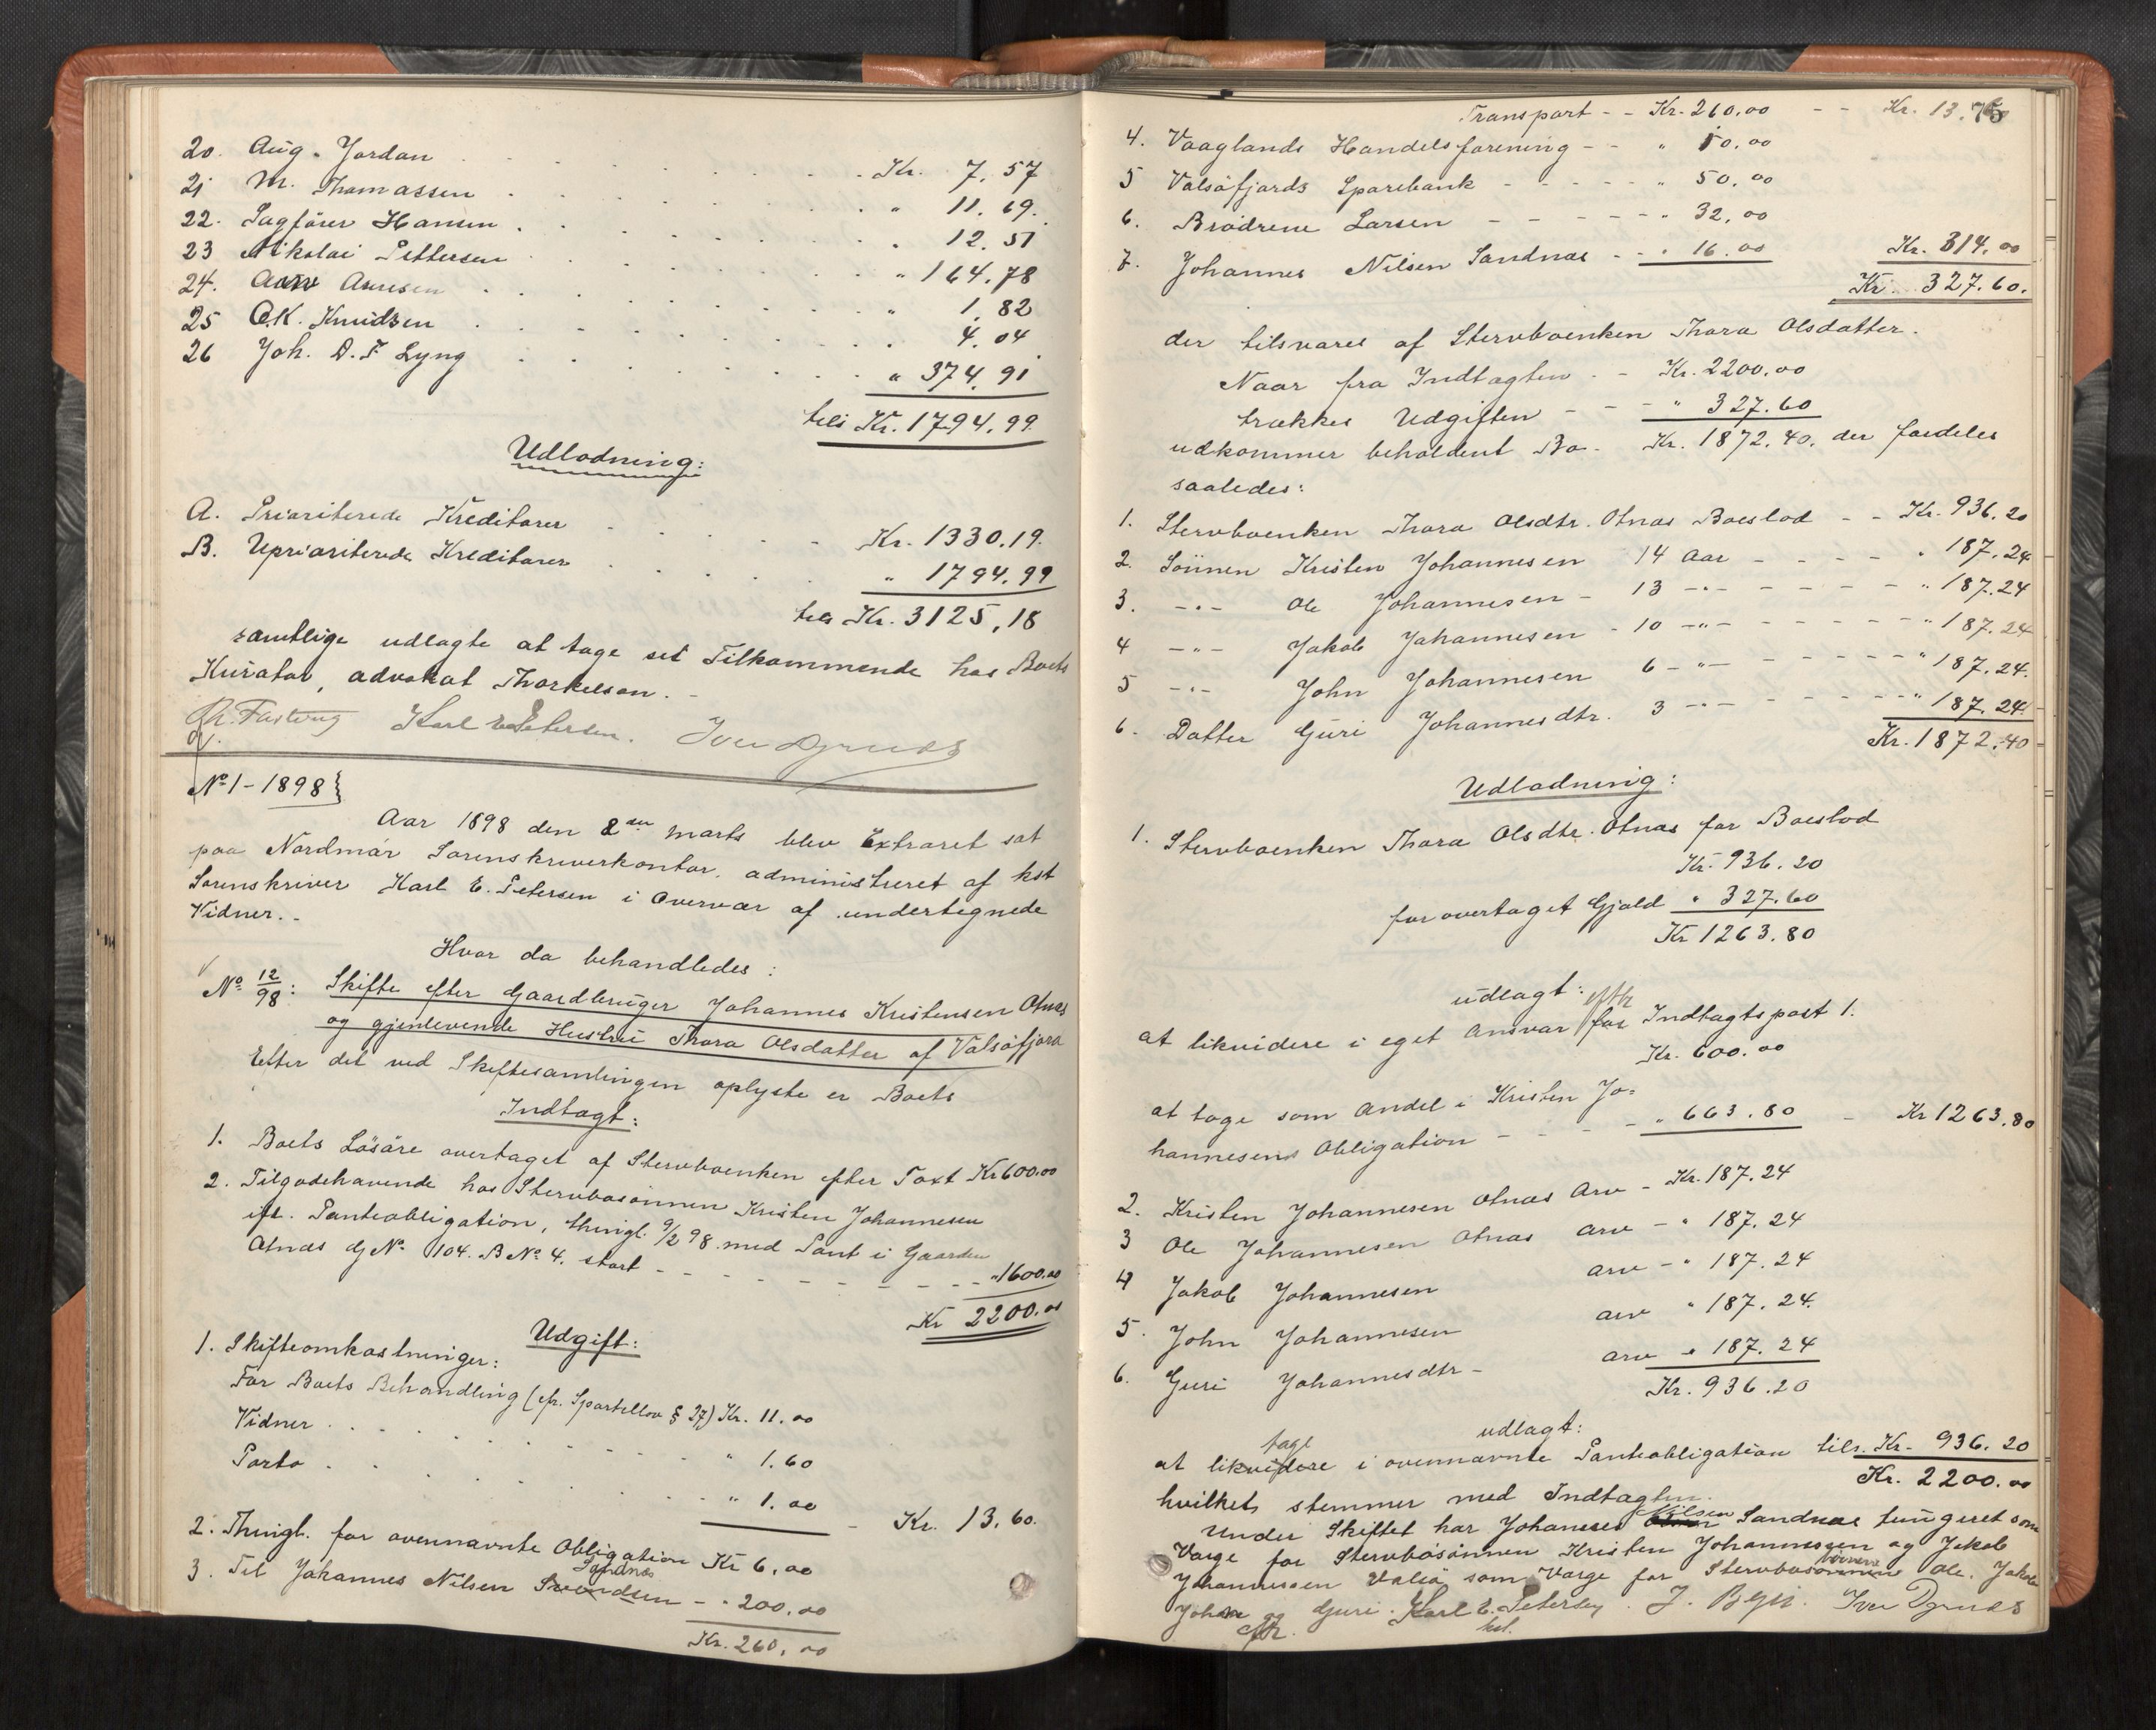 20. Aug. Jordan . . . . . Kr. 7.57
21 M. Thomassen . . . . . " 11.69.
22. Sagfører Hansen . . . . . " 12.51
23 Nikolai Pettersen . . . . . " 164.78
24. . . . . . " 1.82
25 O.K. Knudsen . . . . . 4.04
26 Joh. D. F. Lyng . . . . . " 374.91
tils Kr. 1794.99
Udlodning:
A. Prioriterede Kreditorer . . . Kr. 1330.19.
B. Uprioriterede Kreditorer . . . " 1794.99
tils Kr. 3125,18
samtlige udlagte at tage set Tilkommende hos Boets
Kurator, advokat Thorkelson. -
Karl E. Petersen. Iver
No 1-1898}
Aar 1898 den 8de Marts blev Extraret sat
paa Nordmør Sorenskriverkontor, administreret af kst
Sorenskriver Karl E. Petersen i Overvær af undertegnede
Vidner. -
Hvor da behandledes:
No 12/98: Skifte efter Gaardbruger Johannes Kristensen Otnes
og gjenlevende Hustru Thora Olsdatter af Valsøfjord
Efter det ved Skiftesamlingen oplyste er Boets
Indtægt:
1. Boets Løsøre overtaget af Stervboenken efter Taxt Kr 600.00
2. Tilgodehavende hos Stervbosønnen Kristen Johannesen
ifl. Panteobligation, thingl. 9/2 98 med Pant i Gaarden
Otnæs GNo. 104. BNo. 4. stort - - - - - - - - - " 1600.00
Kr 2200.00
Udgift:
1. Skifteomkostninger:
For Boets Behandling (cfr. Sportellov § 27) Kr. 11.00
Vidner . . . . . . " 1.60
Porto . . . . . . " 1.00 - Kr. 13.60.
2. Thingl. for ovennævnte Obligation Kr 6,00
Sandnæs
3. Til Johannes Nilsen Svendsen - " 200,00
Kr. 260,00
Transport - - Kr. 260,00 - - Kr. 13.
4. Vaaglands Handelsforening - - " 10,00
5 Valsøfjords Sparebank - - - - - " 50,00
6. Brødrene Larsen - - - - - " 32,00
7. Johannes Nilsen Sandnæs - - " 16.00 Kr. 314.00
Kr. 327.60.
der tilsvares af Stervboenken Thora Olsdatter.
Naar fra Indtægten - - Kr. 2200.00
trækkes Udgiften - - - " 327.60
udkommer beholdent Bo - Kr. 1872.40. der fordeles
saaledes:
1. Stervboenken Thora Olsdtr. Otnæs Boeslod - - Kr. 936.20
2. Sønnen Kristen Johannesen 14 Aar - - - - " 187.24
3. -"- Ole Johannesen - 13 -"- - - - - " 187.24
4 -"- Jakob Johannesen - 10 -"- - - - - " 187.24
5 -"- John Johannesen 6 -"- - - - - " 187.24.
6. Datter Guri Johannesdtr. 3 -"- - - - - " 187.24.
Kr. 1872.40
Udlodning:
1. Stervboenken Thora Olsdtr. Otnæs for Boeslod
Kr. 936.20
for overtaget Gjæld " 327.60
Kr 1263.80
udlagt:
at likvidere i eget Ansvar for Indtægtspost 1.
Kr. 600.00
at tage som Andel i Kristen Jo-
hannesens Obligation - - - - " 663.80 - Kr 1263.80
2. Kristen Johannesen Otnæs Arv - Kr. 187.24
3 Ole Johannesen Otnæs Arv - " 187.24
4 Jakob Johannesen arv - " 187.24
5. John Johannesen arv " 187.24.
6. Guri Johannesdtr - arv " 187.24
Kr. 936.20
udlagt:
tage
at likvidere i ovennævnte Panteobligation tils. Kr. 936.20
Kr. 2200.00
hvilket stemmer med Indtægten.
Nilsen
Under Skiftet har Johannes Sandnæs fungeret som
Værge for Stervbosønnen Kristen Johannessen og Jakob
børnene
Johannessen Valsø som Værge for Stervbosønnen Ole, Jakob
John og Guri. Karl E. Petersen. Iver
kst.